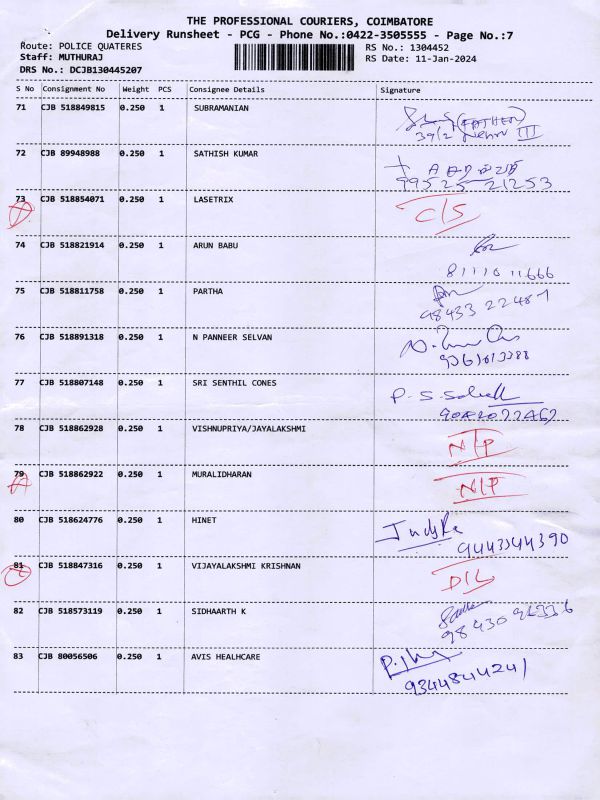 THE PROFESSIONAL COURIERS, COIMBATORE
Delivery Runsheet - PCG - Phone No.:0422-3505555 - Page No.:7
Route: POLICE QUATERES RS No.: 1304452
Staff: MUTHURAJ RS Date: 11-Jan-2024
DRS No.: DCJB130445207
S No Consignment No Weight PCS Consignee Details Signature
71 CJB 518849815 0.250 1 SUBRAMANIAN
(FATHER)
39/2 III
72 CJB 89948988 0.250 1 SATHISH KUMAR
99525 21253
73 CJB 518854071 0.250 1 LASETRIX C/S
74 CJB 518821914 0.250 1 ARUN BABU
8111011666
75 CJB 518811758 0.250 1 PARTHA
98433 22487
76 CJB 518891318 0.250 1 N PANNEER SELVAN
77 CJB 518807148 0.250 1 SRI SENTHIL CONES P. S.
78 CJB 518862928 0.250 1 VISHNUPRIYA/JAYALAKSHMI N/P
79 CJB 518862922 0.250 1 MURALIDHARAN N/P
80 CJB 518624776 0.250 1 HINET
9443344390
81 CJB 518847316 0.250 1 VIJAYALAKSHMI KRISHNAN D/L
82 CJB 518573119 0.250 1 SIDHAARTH K
83 CJB 80056506 0.250 1 AVIS HEALHCARE
9344844241